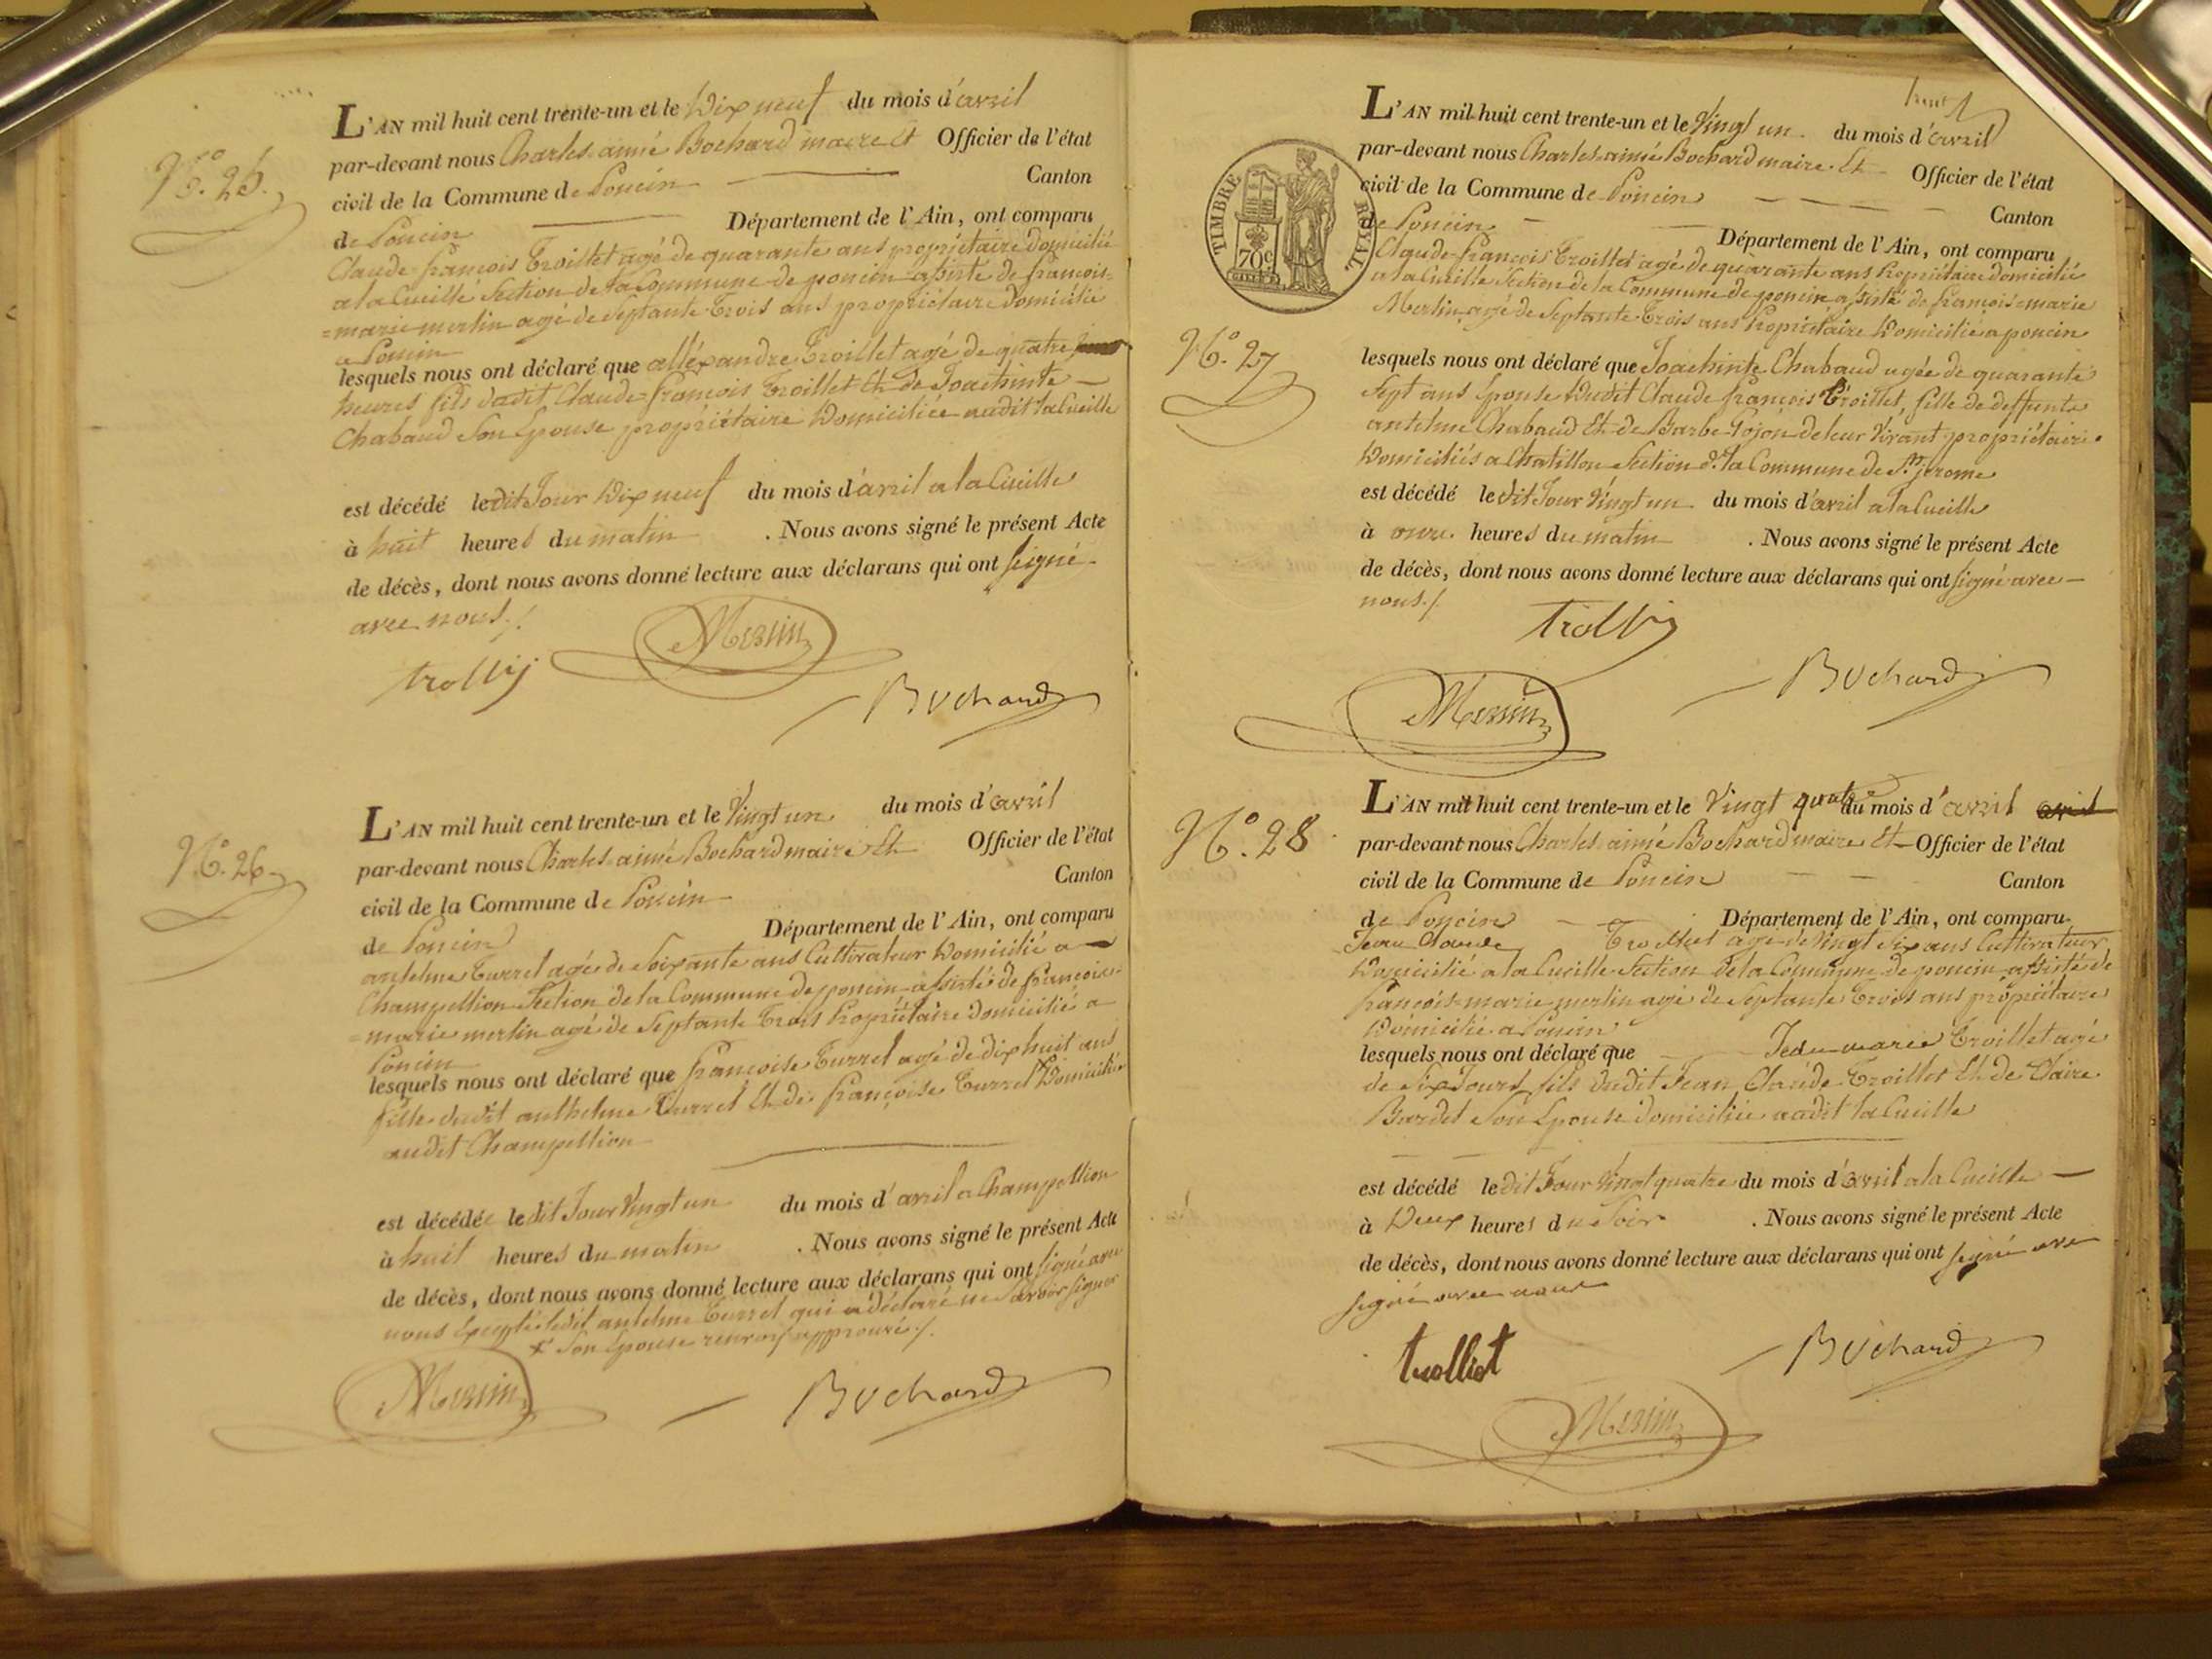 N.o 25.
L'AN mil huit cent trente-un et le Dix neuf du mois d'avril
par-devant nous Charles aimé Bochard maire et Officier de l'état
civil de la Commune de Poncin Canton
de Poncin Département de l'Ain, ont comparu
Claude-françois Troillet agé de quarante ans propriétaire domicilié
a la Cueille Section de la Commune de poncin assisté de françois=
=marie merlin agé de Septante Trois ans propriétaire domicilié
a Poncin
lesquels nous ont déclaré que alléxandre Troillet agé de quatre
heures fils dudit Claude-françois Troillet Et de Joachinte
Chabaud Son Epouse propriétaire Domiciliée audit la Cueille
est décédé le dit Jour Dix neuf du mois d'avril a la Cueille
à huit heures du matin . Nous avons signé le présent Acte
de décès, dont nous avons donné lecture aux déclarans qui ont signé
avec nous ./.
Merlin
trollij
Bochard
N.o 26.
L'AN mil huit cent trente-un et le Vingt un du mois d'avril
par-devant nous Charles aimé Bochard maire Et Officier de l'état
civil de la Commune de Poncin Canton
de Poncin Département de l'Ain, ont comparu
antelme Turrel agé de Soixante ans Cultivateur Domicilié a
Champellion Section de la Commune de poncin assisté de françois
=marie merlin agé de Septante Trois Propriétaire Domicilié a
Poncin
lesquels nous ont déclaré que françoise Turrel agé de dix huit ans
fille dudit anthelme Turrel Et de françoise Turrel Domiciliés
audit Champellion
est décédée le dit Jour Vingt un du mois d'avril a Champellion
à huit heures du matin . Nous avons signé le présent Acte
de décès, dont nous avons donné lecture aux déclarans qui ont signé avec
nous Excepté ledit antelme Turrel qui a déclaré ne Savoir Signer
x Son Epouse renvoi approuvé ./.
Merlin
Bochard
TIMBRE ROYAL
70c
N.o 27
L'AN mil huit cent trente-un et le Vingt un du mois d'avril
par-devant nous Charles aimé Bochard maire Et Officier de l'état
civil de la Commune de Poncin Canton
de Poncin Département de l'Ain, ont comparu
Claude-françois Troillet agé de quarante ans Propriétaire Domicilié
a la Cueille Section de la Commune de poncin assisté de françois=marie
Merlin agé de Septante Trois ans Propriétaire Domicilié a poncin
lesquels nous ont déclaré que Joachinte Chabaud agée de quarante
Sept ans Epouse Dudit Claude françois Troillet, fille de deffunts
antelme Chabaud Et de Barbe Gojon de leur Vivant propriétaires
Domiciliés a Chatillon Section de la Commune de St. jerome
est décédé le dit Jour Vingt un du mois d'avril a la Cueille
à onze heures du matin . Nous avons signé le présent Acte
de décès, dont nous avons donné lecture aux déclarans qui ont signé avec
nous ./.
trollij
Bochard
Merlin
N.o 28
L'AN mil huit cent trente-un et le Vingt quatre du mois d'avril avril
par-devant nous Charles aimé Bochard maire Et Officier de l'état
civil de la Commune de Poncin Canton
de Poncin Département de l'Ain, ont comparu
Jean Claude Troilliet agé de Vingt Six ans Cultivateur
Domicilié a la Cueille Section de la Commune de poncin assisté de
françois=marie merlin agé de Septante Trois ans propriétaire
Domicilié a Poncin
lesquels nous ont déclaré que Jean marie Troillet agé
de Six Jours fils dudit Jean Claude Troillet Et de Claire
Burdet Son Epouse domiciliée audit la Cueille
est décédé le dit Jour Vingt quatre du mois d'avril a la Cueille
à Deux heures du Soir . Nous avons signé le présent Acte
de décès, dont nous avons donné lecture aux déclarans qui ont signé avec
signé avec nous
trolliet
Bochard
Merlin